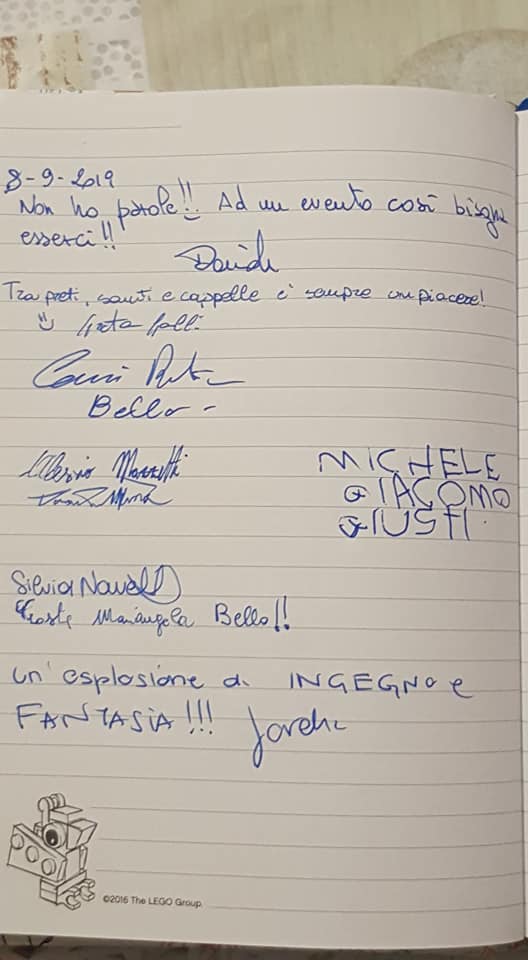 8-9-2019
Non ho parole!! Ad un evento così bisogna
esserci!!
Davide
Tra preti, santi e cappelle è sempre un piacere!
Greta
Bello -
Mazzetti
MICHELE
GIACOMO
GIUSTI.
Silvia
Mariangela Bello!!
un' esplosione di INGEGNO e
FANTASIA!!!
©2016 The LEGO Group.